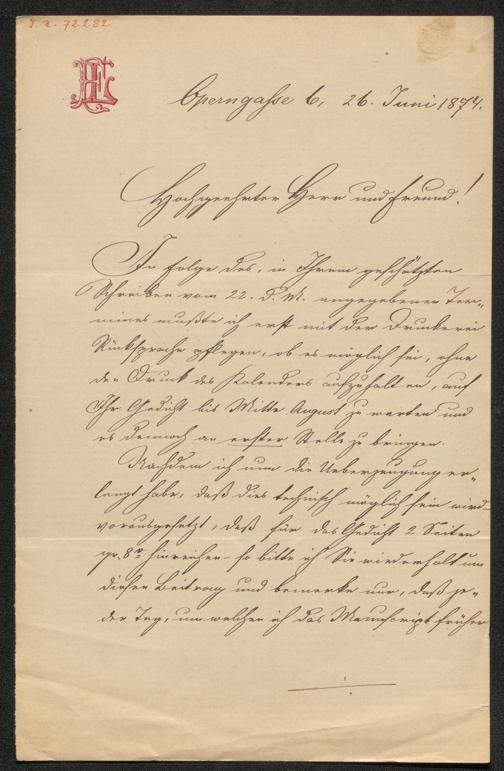 I. N. 72282
Operngasse 6, 26. Juni 1874.
Hochgeehrter Herr und Freund!
In Folge des, in Ihrem geschätzten
Schreiben vom 22. d. M. angegebenen Ter-
mines mußte ich erst mit der Druckerei
Rücksprache pflegen, ob es möglich sei, ohne
den Druck des Kalenders aufzuhalten, auf
Ihr Gedicht bis Mitte August zu warten und
es dennoch an erster Stelle zu bringen.
Nachdem ich nun die Ueberzeugung er-
langt habe, daß dies technisch möglich sein wird
vorausgesetzt, daß für das Gedicht 2 Seiten
gr. 8° hinreichen – so bitte ich Sie wiederholt um
diesen Beitrag und bemerke nur, daß je-
der Tag, um welchen ich das Manuscript früher